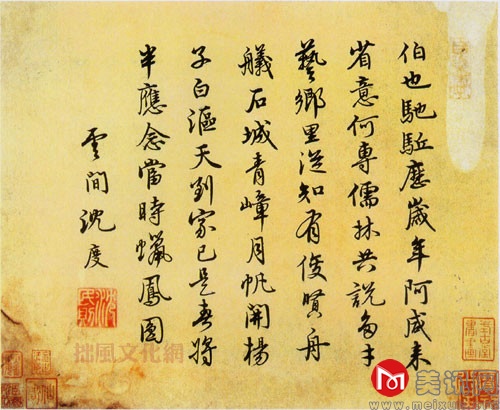 伯也馳駈歷歲年阿咸来
省意何專儒林共說多才
藝鄉里從知有俊賢舟
艤石城青嶂月帆開楊
子白漚天到家已是春将
半應念當時蠟鳳圓
雲間沈度
拙風文化網